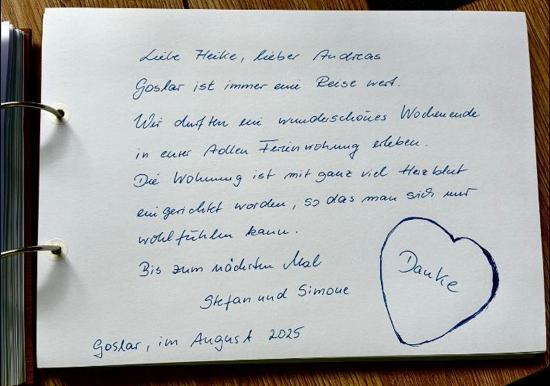 Liebe Heike, lieber Andreas
Goslar ist immer eine Reise wert.
Wir durften ein wunderschönes Wochenende
in eurer Adlen Ferienwohnung erleben.
Die Wohnung ist mit ganz viel Herzblut
eingerichtet worden, so das man sich nur
wohlfühlen kann.
Bis zum nächsten Mal
Stefan und Simone
Danke
Goslar, im August 2025